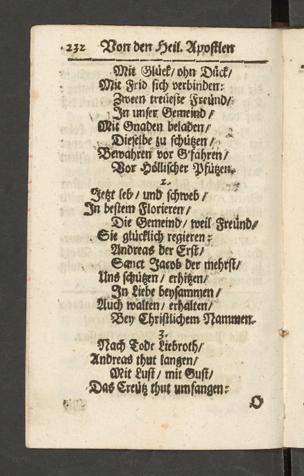 232 Von den Heil. Apostlen
Mit Glück/ ohn Dück/
Mit Frid sich verbinden:
Zween treüeste Freünd/
In unser Gemeind/
Mit Gnaden beladen/
Dieselbe zu schützen/
Bewahren vor G'fahren/
Vor Höllischer Pfützen.
2.
Jetzt leb/ und schweb/
In bestem Florieren/
Die Gemeind/ weil Freünd/
Sie glücklich regieren:
Andreas der Erst/
Sanct Jacob der mehrst/
Uns schützen/ erhitzen/
In Liebe beysammen/
Auch walten/ erhalten/
Bey Christlichem Nammen.
3.
Nach Tode Liebroth/
Andreas thut langen/
Mit Lust/ mit Gust/
Das Creütz thut umfangen:
O